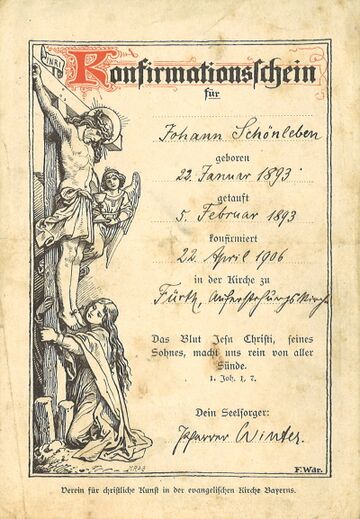 INRI
Konfirmationsschein
für
Johann Schönleben
geboren
22. Januar 1893
getauft
5. Februar 1893
konfirmiert
22. April 1906
in der Kirche zu
Fürth, Auferstehungskirche
Das Blut Jesu Christi, seines
Sohnes, macht uns rein von aller
Sünde.
1. Joh. 1, 7.
Dein Seelsorger:
Pfarrer Winter.
F. Wdr.
Verein für christliche Kunst in der evangelischen Kirche Bayerns.